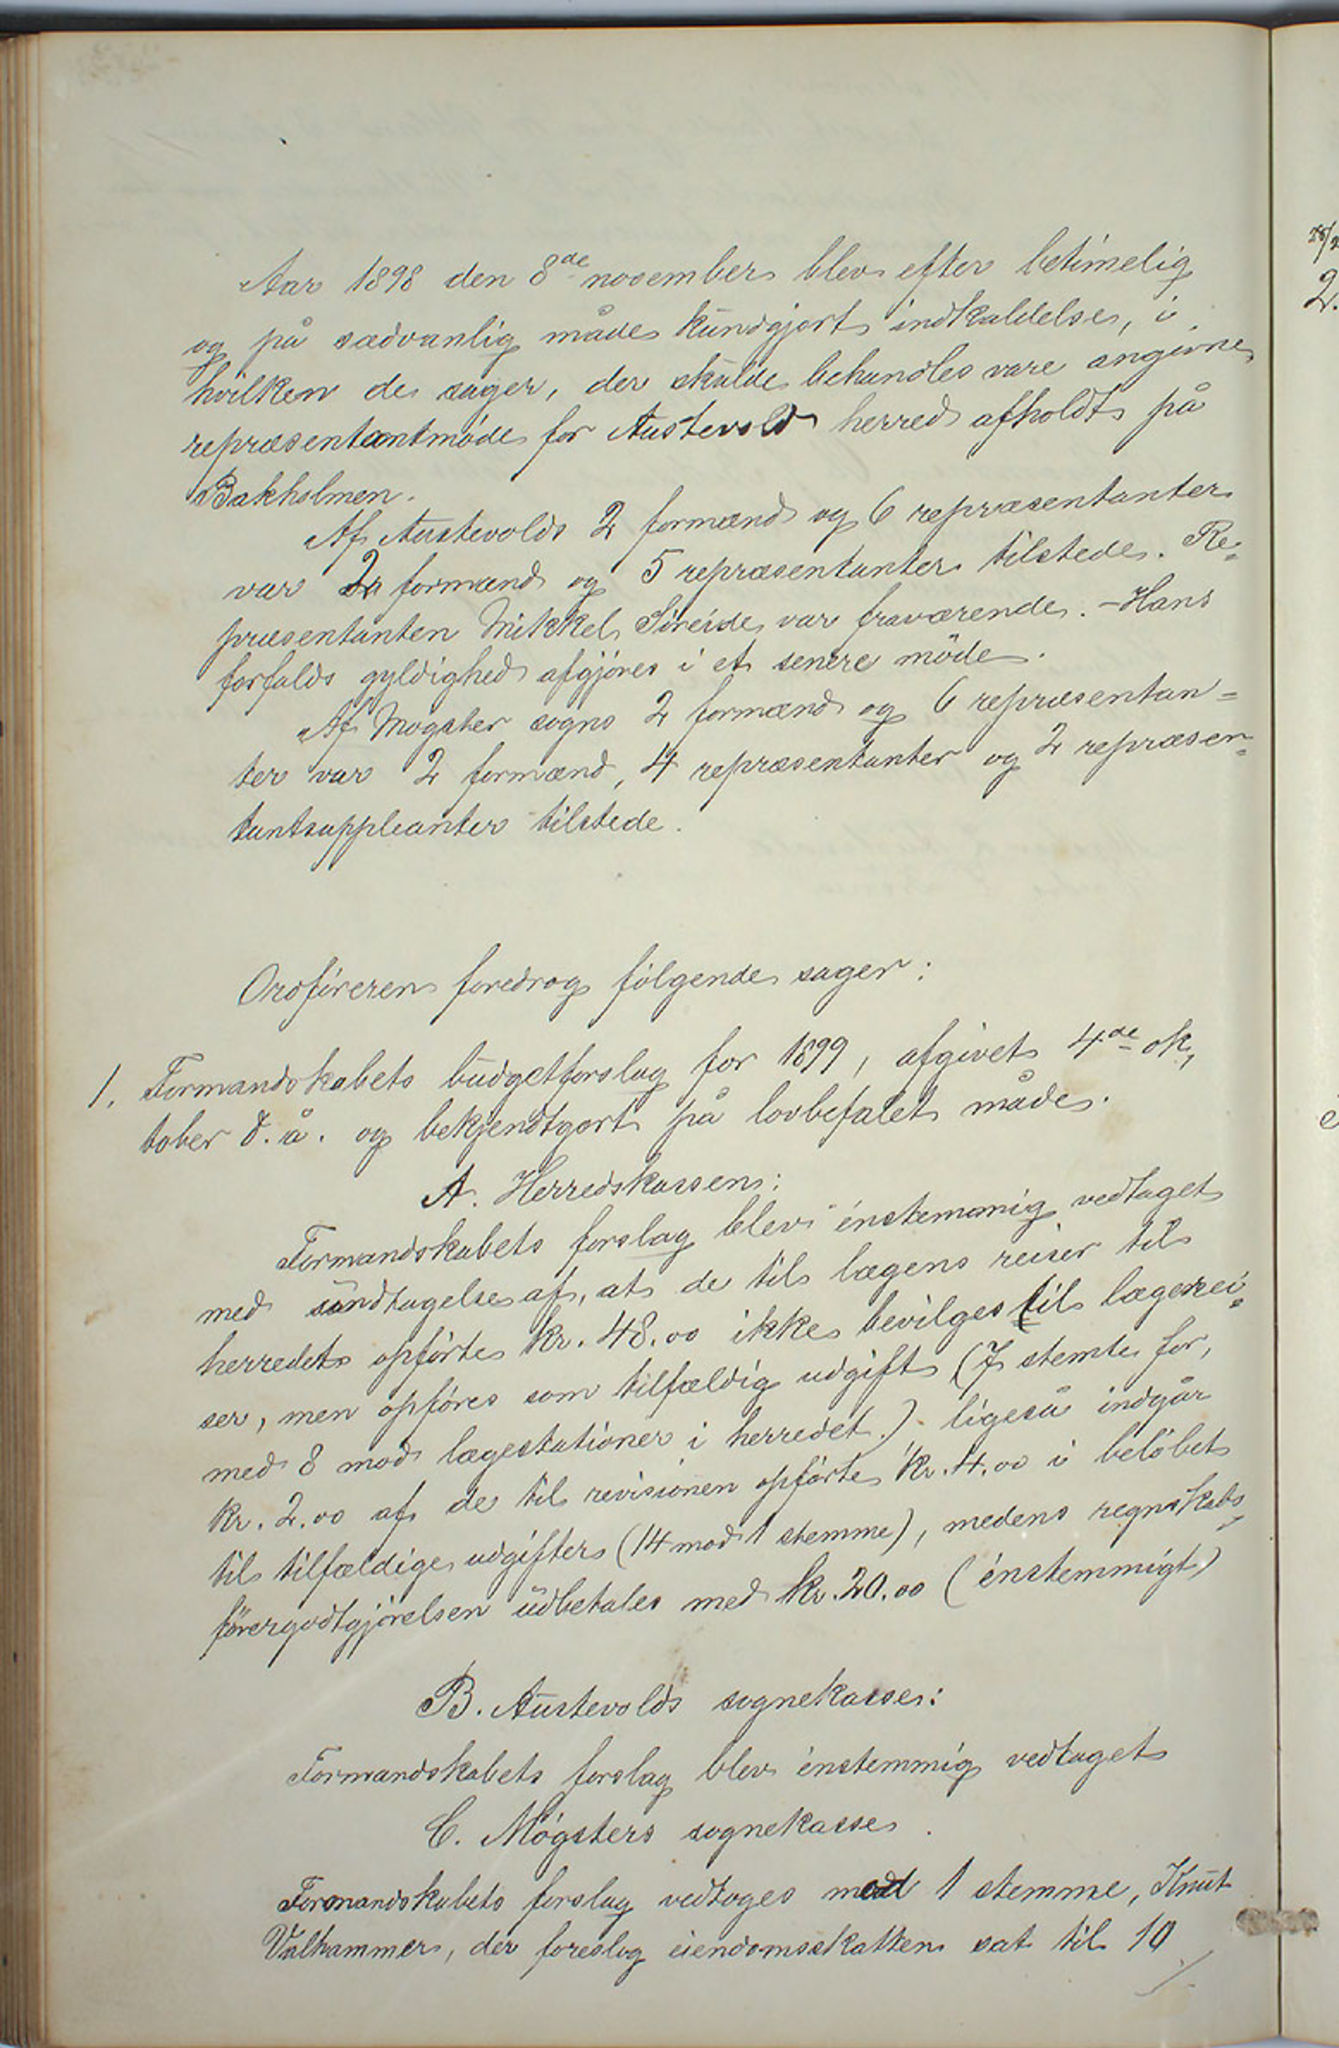 Aar 1898 den 8de november blev efter betimelig
og på sædvanlig måde kundgjort indkaldelse, i
hvilken de sager, der skulde behandles vare angivne
repræsentantmöde for Austevold herred afholdt på
Bakholmen.
Af Austevolds 2 formænd og 6 repræsentanter
var 2 formænd og 5 repræsentanter tilstede. Re-
præsentanten Mikkel Söreide var fraværende. - Hans
forfalds gyldighed afgjöres i et senere möde.
Af Møgster sogns 2 formænd og 6 repræsentan-
ter var 2 formænd, 4 repræsentanter og 2 repræsen-
tantsuppleanter tilstede.
Ordföreren foredrog fölgende sager:
1. Formandskabets budgetforslag for 1899, afgivet 4de ok-
tober d. å. og bekjendtgort på lovbefalet måde.
A. Herredskassen:
Formandskabets forslag blev énstemmig vedtaget
med undtagelse af, at de til lægens reiser til
herredet opförte kr. 48.00 ikke bevilges til lægerei-
ser, men opföres som tilfældig udgift (7 stemte for,
med 8 mod lægestationer i herredet.) ligeså indgår
kr. 2.00 af de til revisionen opförte kr. 4.00 i belöbet
til tilfældige udgifter (14 mod 1 stemme), medens regnskabs-
förergodtgjörelsen udbetales med kr. 20.00 (énstemmigt)
B. Austevolds sognekasse:
Formandskabets forslag blev énstemmig vedtaget
C. Møgsters sognekasse.
Formandskabets forslag vedtoges mod 1 stemme, Knut
Valhammer, der foreslog eiendomsskatten sat til 10
2.